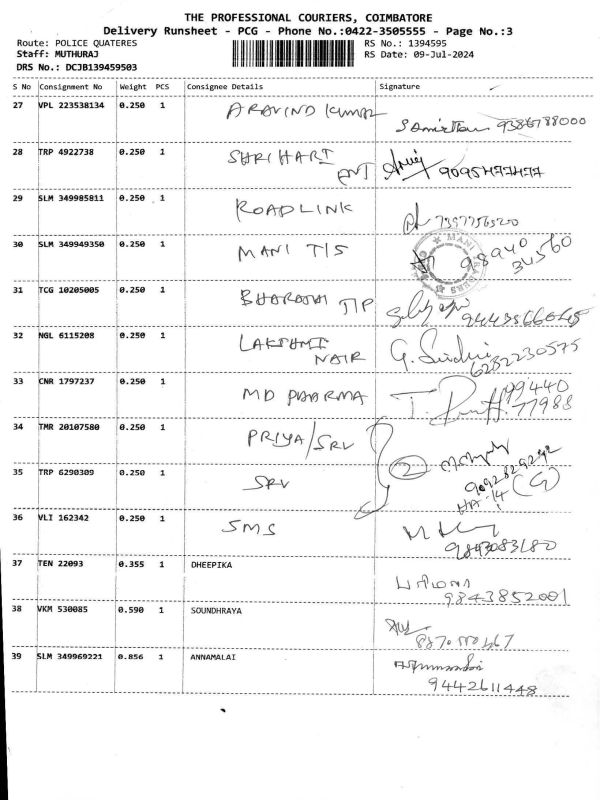 THE PROFESSIONAL COURIERS, COIMBATORE
Delivery Runsheet - PCG - Phone No.:0422-3505555 - Page No.:3
Route: POLICE QUATERES RS No.: 1394595
Staff: MUTHURAJ RS Date: 09-Jul-2024
DRS No.: DCJB139459503
S No Consignment No Weight PCS Consignee Details Signature
27 VPL 223538134 0.250 1 ARAVIND KUMAR
9386788000
28 TRP 4922738 0.250 1 SHRI HARI
ENT 9095477477
29 SLM 349985811 0.250 1 ROADLINK
73977565200
30 SLM 349949350 0.250 1 MANI T/S
98940
34560
31 TCG 10205005 0.250 1 BHARATHI T/P
32 NGL 6115208 0.250 1 LAKSHMI
NAIR
6232230575
33 CNR 1797237 0.250 1 MD PHARMA
99440
77988
34 TMR 20107580 0.250 1 PRIYA/SRV
2
35 TRP 6290309 0.250 1 SRV
9092829292
HA-14 (G)
36 VLI 162342 0.250 1 SMS
9843083180
37 TEN 22093 0.355 1 DHEEPIKA
9843852001
38 VKM 530085 0.590 1 SOUNDHRAYA
39 SLM 349969221 0.856 1 ANNAMALAI
9442611448